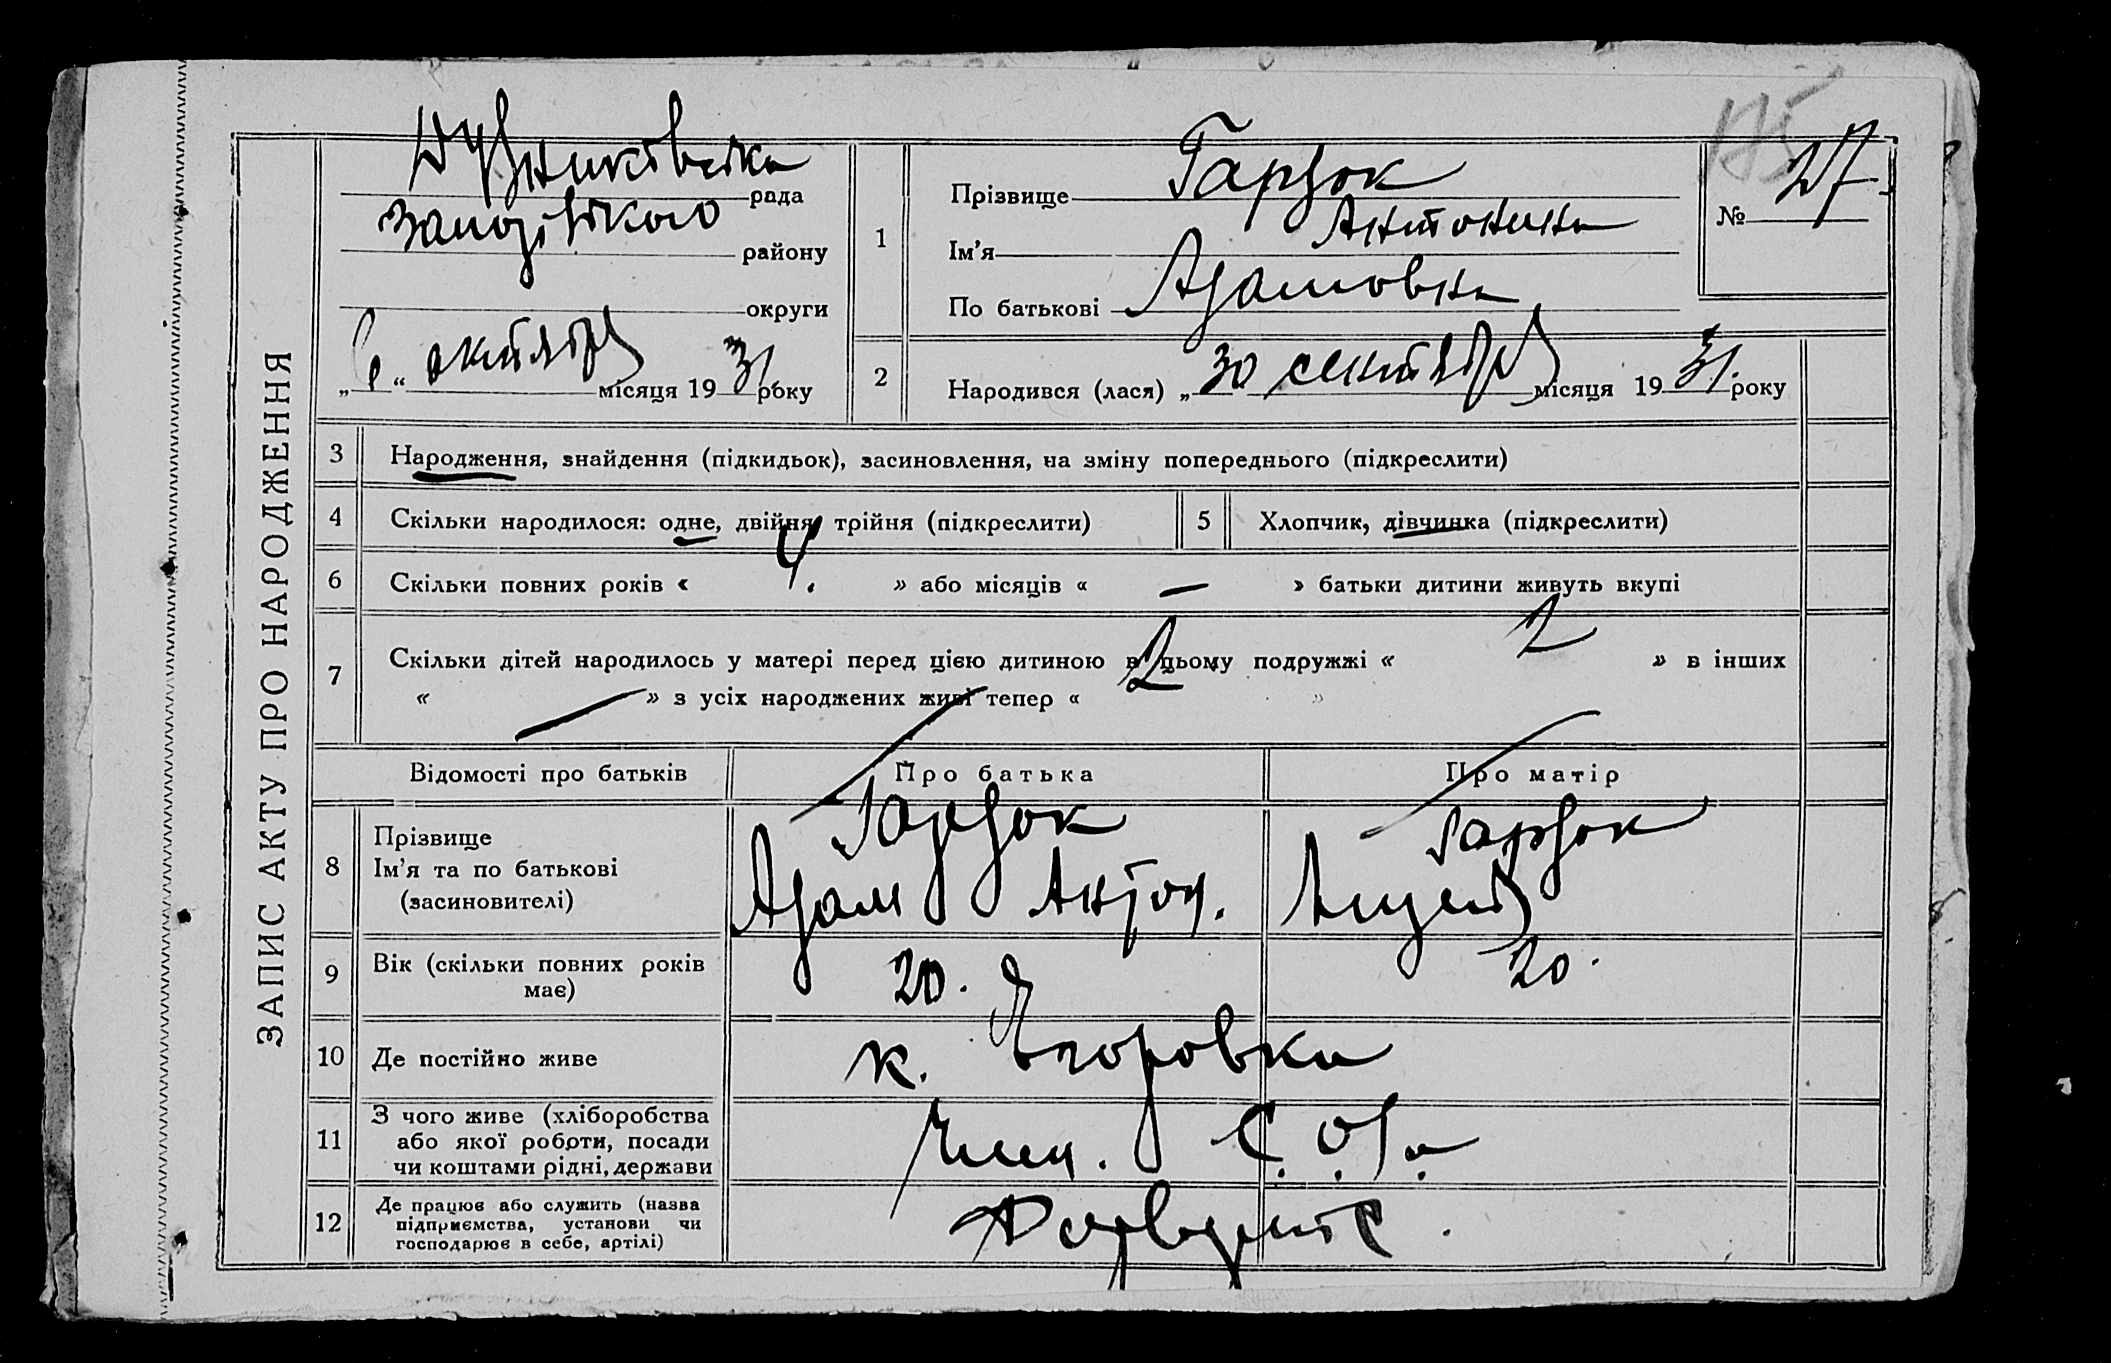 ЗАПИС АКТУ ПРО НАРОДЖЕННЯ
175
рада
району
округи
„6“ октября місяця 1931 року
1
Прізвище Гардок
Ім'я Антонина
По батькові Адамовна
№ 27
2
Народився (лася) „30 сентября місяця 1931 року
3
Народження, знайдення (підкидьок), засиновлення, на зміну попереднього (підкреслити)
4
Скільки народилося: одне, двійня, трійня (підкреслити)
5
Хлопчик, дівчинка (підкреслити)
6
Скільки повних років « 4. » або місяців « — » батьки дитини живуть вкупі
7
Скільки дітей народилось у матері перед цією дитиною в цьому подружжі « 2 » в інших
« — » з усіх народжених живі тепер « 2 »
Відомості про батьків
Про батька
Про матір
8
Прізвище
Ім'я та по батькові
(засиновителі)
Гардок
Адам Антон.
Гардок
9
Вік (скільки повних років
має)
20.
20.
10
Де постійно живе
к. Егоровка
11
З чого живе (хліборобства
або якої роботи, посади
чи коштами рідні, держави
12
Де працює або служить (назва
підприємства, установи чи
господарює в себе, артілі)